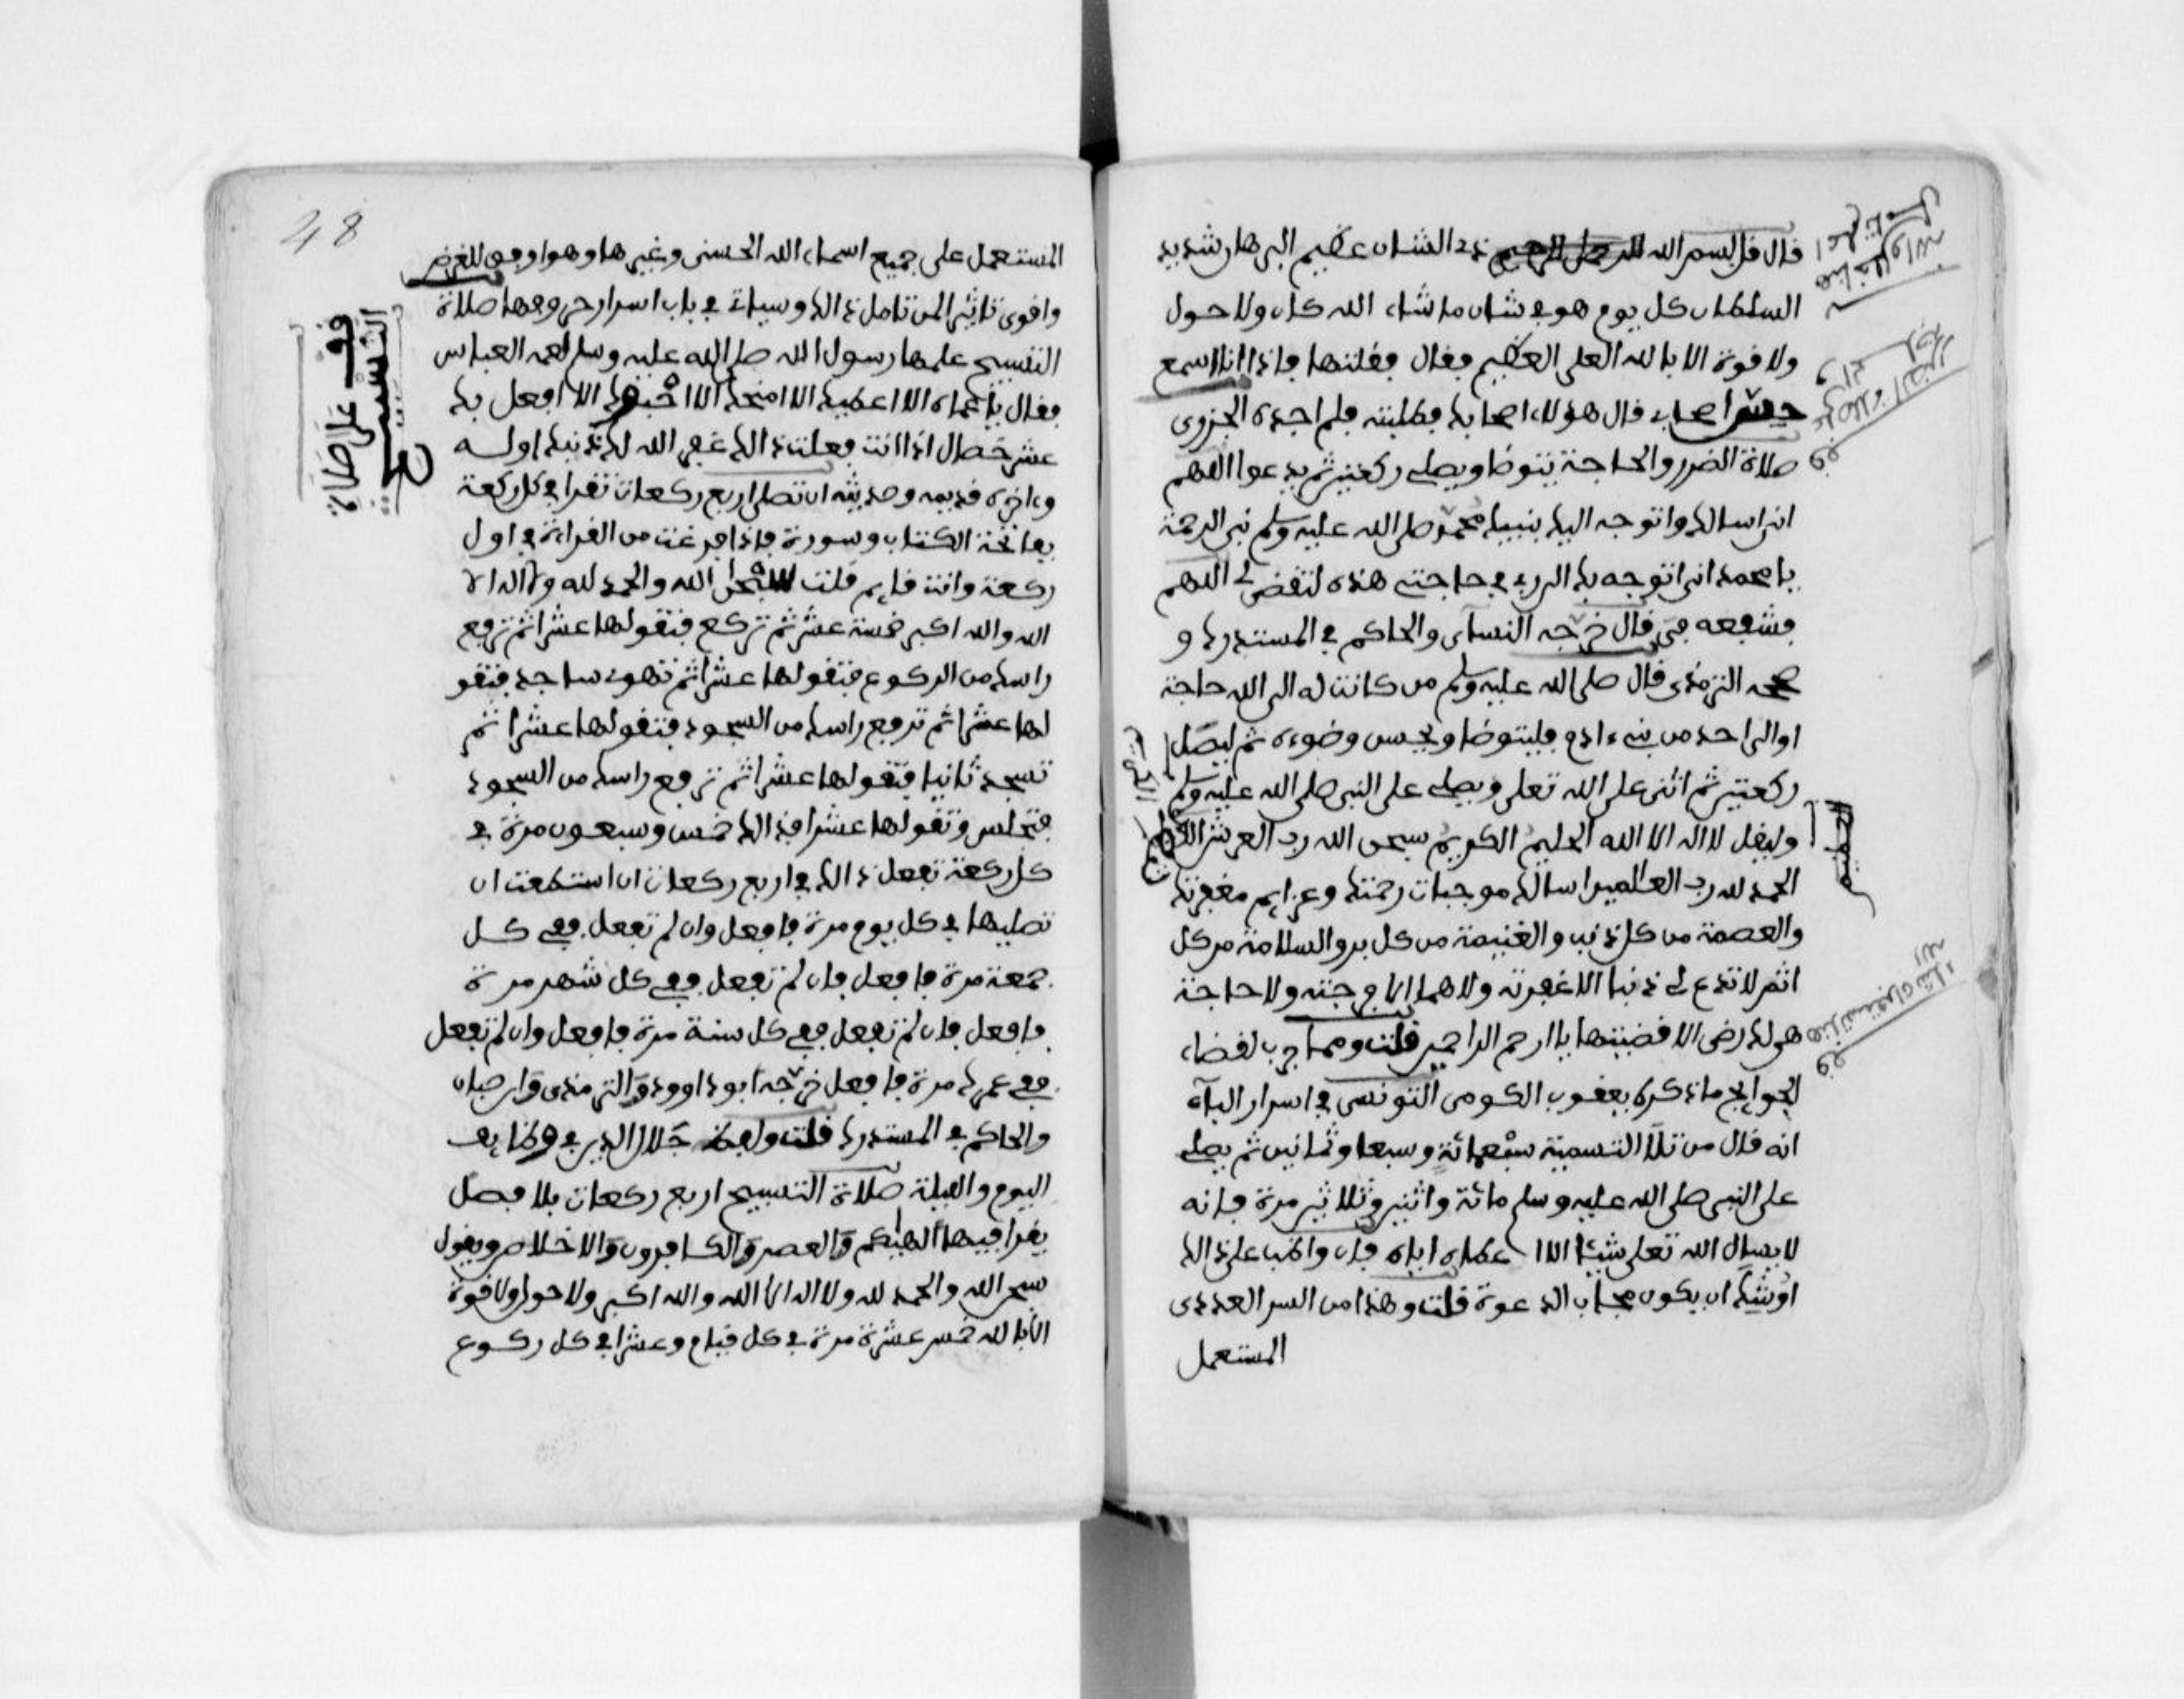 قال قل بسم الله الرحمن الرحيم ذي الشان عظيم البرهان شديد
السلطان كل يوم هو في شان ما شاء الله كان ولا حول
ولا قوة الا بالله العلي العظيم فقال فقلتها فاذا انا اسمع
اصحابي قال هولاء اصحابك فطلبته فلم اجده الجزري
صلاة الضرر والحاجة يتوضا ويصلي ركعتين ثم يدعوا اللهم
اني اسالك واتوجه اليك بنبيك محمد صلى الله عليه وسلم نبي الرحمة
يا محمد اني اتوجه بك الى ربي في حاجتي هذه لتقضى لي اللهم
فشفعه في قال خرجه النساءي والحاكم في المستدرك و
صححه الترمذي قال صلى الله عليه وسلم من كانت له الى الله حاجة
او الى احد من بني ءادم فليتوضا ويحسن وضوءه ثم ليصل
ركعتين ثم اثنى على الله تعلى ويصلي على النبي صلى الله عليه وسلم
وليقل لا اله الا الله الحليم الكريم سبحن الله رب العرش العظيم
الحمد لله رب العالمين اسالك موجبات رحمتك وعزايم مغفرتك
والعصمة من كل ذنب والغنيمة من كل بر والسلامة من كل
اثم لا تدع لي ذنبا الا غفرته ولا هما الا فرجته ولا حاجة
هي لك رضى الا قضيتها يا ارحم الراحمين قلت ومما جرب لقضاء
الحوايج ما ذكره يعقوب الكومي التونسي في اسرار الباء
انه قال من تلا التسمية سبعمائة وسبعا وثمانين ثم يصلي
على النبي صلى الله عليه وسلم مائة واثنين وثلاثين مرة فانه
لا يسال الله تعلى شيئا الا اعطاه اياه فان واظب على ذالك
اوشك ان يكون مجاب الدعوة قلت وهذا من السر العددي
المستعمل
48
المستعمل على جميع اسماء الله الحسنى وغيرها وهو اوفى للغرض
واقوى تاثيرا لمن تامل ذالك وسياتي في باب اسرار حروفها صلاة
التسبيح علمها رسول الله صلى الله عليه وسلم لعمه العباس
فقال يا عماه الا اعطيك الا امنحك الا احبوك الا افعل بك
عشر خصال اذا انت فعلت ذالك غفر الله لك ذنبك اوله
وءاخره قديمه وحديثه ان تصلي اربع ركعات تقرا في كل ركعة
بفاتحة الكتاب وسورة فاذا فرغت من القراءة في اول
ركعة وانت قايم قلت سبحن الله والحمد لله ولا اله الا
الله والله اكبر خمسة عشر ثم تركع فتقولها عشرا ثم ترفع
راسك من الركوع فتقولها عشرا ثم تهوي ساجدا فتقو
لها عشرا ثم ترفع راسك من السجود فتقولها عشرا ثم
تسجد ثانيا فتقولها عشرا ثم ترفع راسك من السجود
فتجلس وتقولها عشرا فذالك خمس وسبعون مرة في
كل ركعة تفعل ذالك في اربع ركعات ان استطعت ان
تصليها في كل يوم مرة فافعل وان لم تفعل ففي كل
جمعة مرة فافعل فان لم تفعل ففي كل شهر مرة
فافعل فان لم تفعل ففي كل سنة مرة فافعل وان لم تفعل
ففي عمرك مرة فافعل خرجه ابو داوود والترمذي وابن حبان
والحاكم في المستدرك قلت ولفظ جلال الدين في وظايف
اليوم والليلة صلاة التسبيح اربع ركعات بلا فصل
يقرا فيها الهيكم والعصر والكافرون والاخلاص ويقول
سبحن الله والحمد لله ولا اله الا الله والله اكبر ولا حول ولا قوة
الا بالله خمس عشرة مرة في كل قيام وعشرا في كل ركوع
قف على صلاة
التسبيح